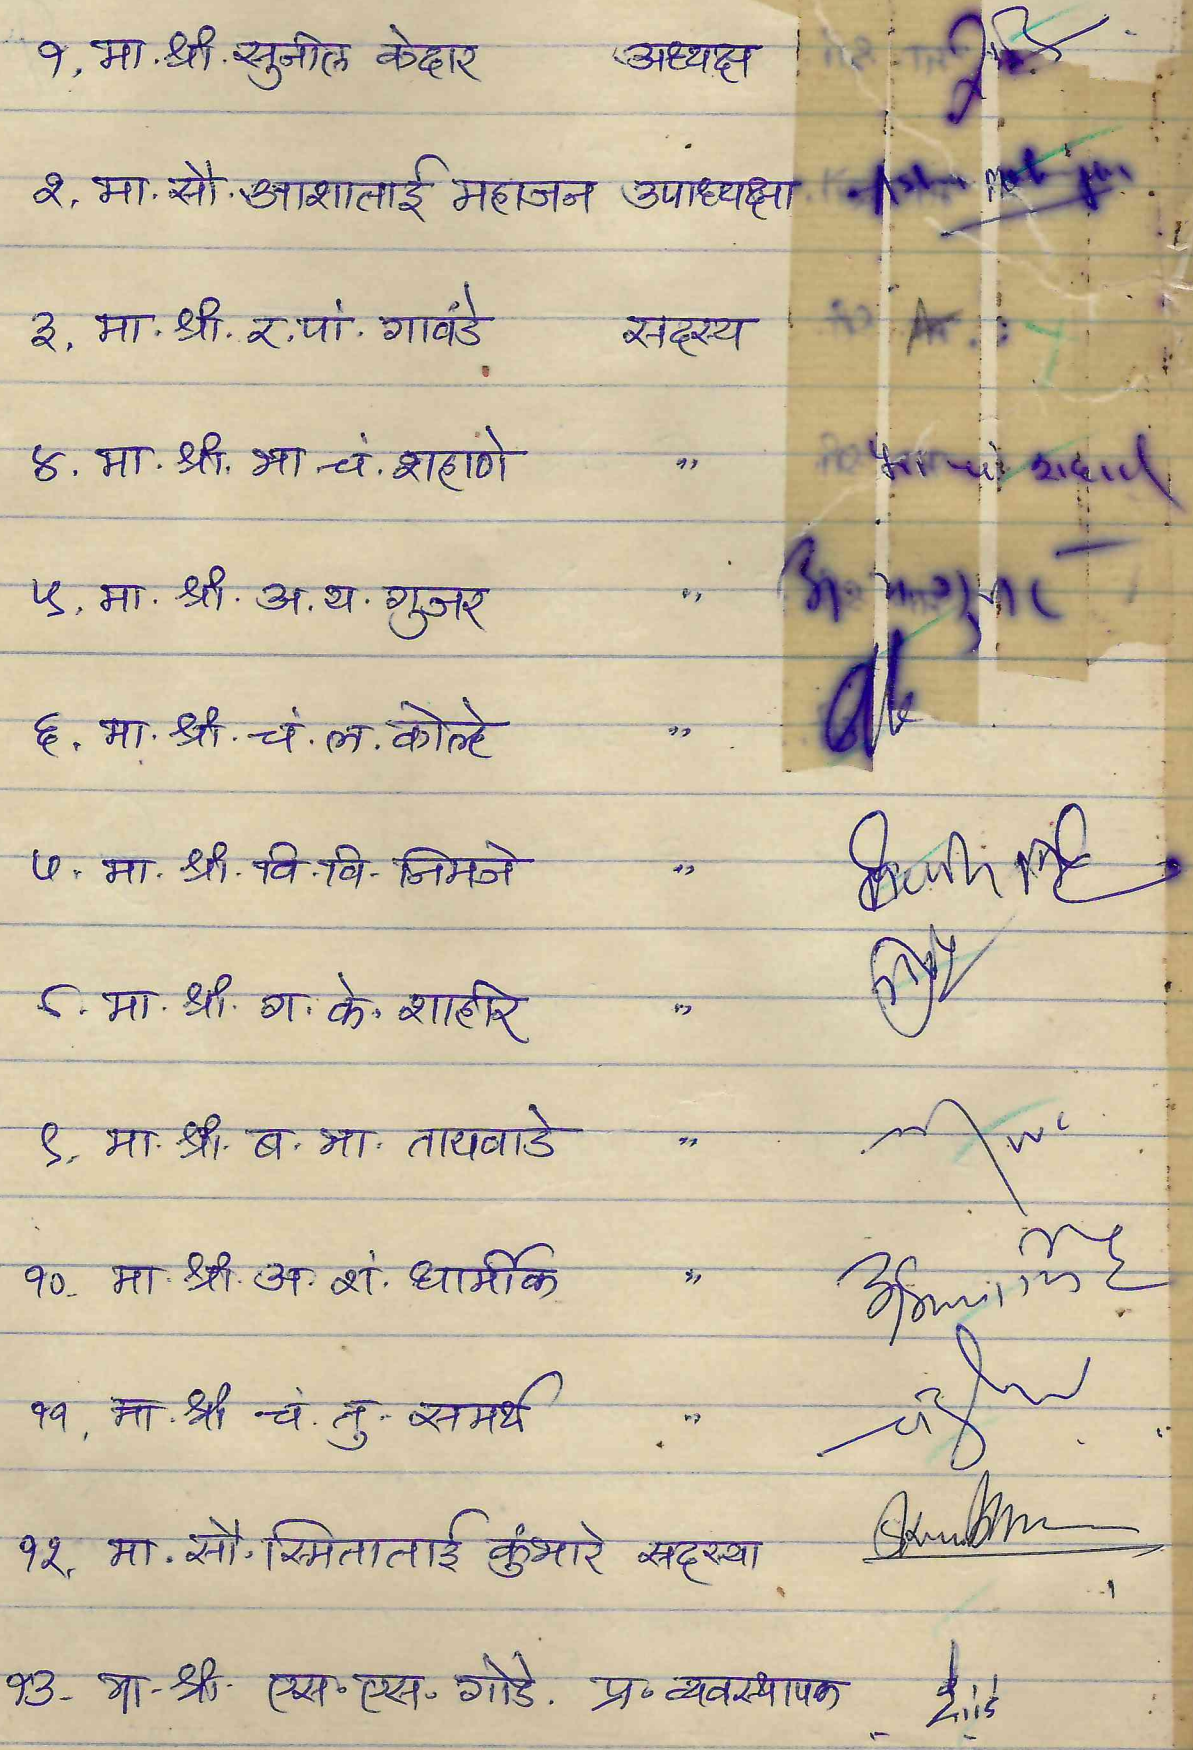 १. मा. श्री. सुनील केदार अध्यक्ष
२. मा. सौ. आशाताई महाजन उपाध्यक्षा
३. मा. श्री. र. पां. गावंडे सदस्य
४. मा. श्री. भा. चं. शहाणे "
५. मा. श्री. अ. य. गुजर "
६. मा. श्री. चं. ल. कोल्हे "
७. मा. श्री. वि. वि. निमजे "
८. मा. श्री. ग. के. शाहीर "
९. मा. श्री. ब. भा. तायवाडे "
१०. मा. श्री. अ. शं. धार्मीक "
११. मा. श्री. चं. तु. समर्थ "
१२. मा. सौ. स्मिताताई कुंभारे सदस्या
१३. मा. श्री. एस. एस. गोडे. प्र. व्यवस्थापक